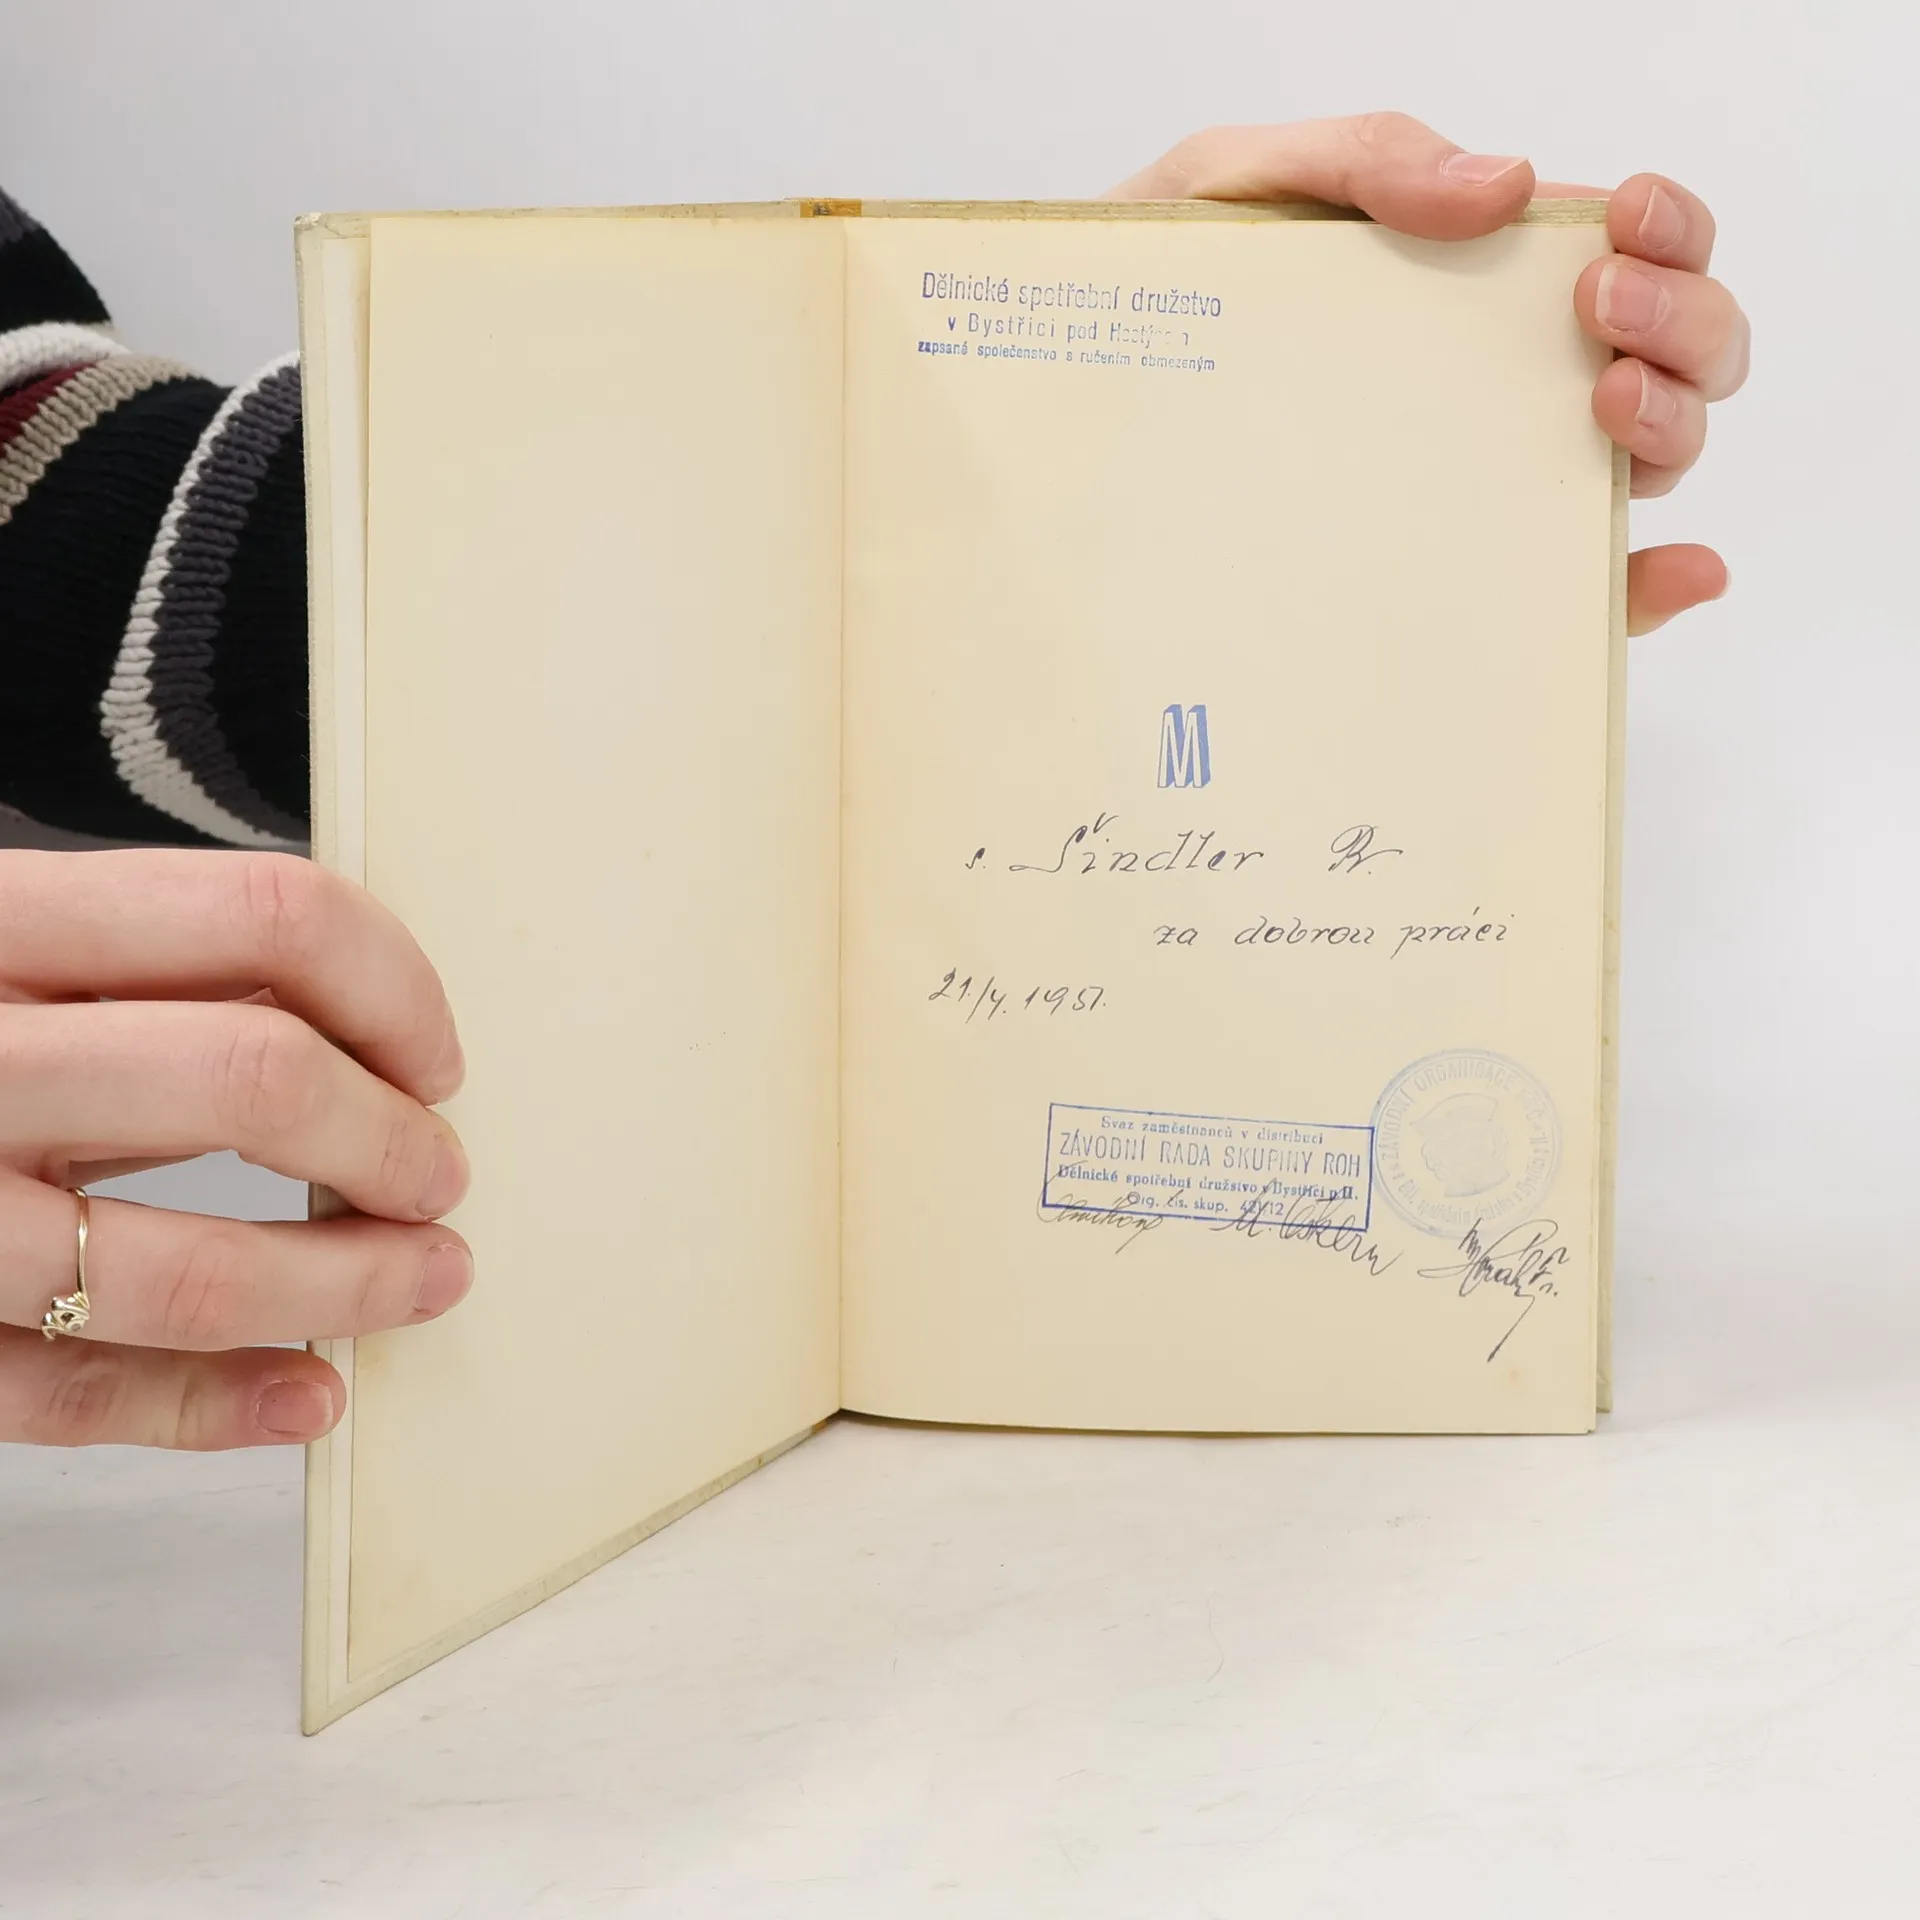 Dělnické spotřební družstvo
v Bystřici pod Hostýnem
zapsané společenstvo s ručením obmezeným
M
s. Šindler
za dobrou práci
21./4. 1951.
Svaz zaměstnanců v distribuci
ZÁVODNÍ RADA SKUPINY ROH
Dělnické spotřební družstvo v Bystřici p. H.
Org. čís. skup.
ZÁVODNÍ ORGANISACE KSČ